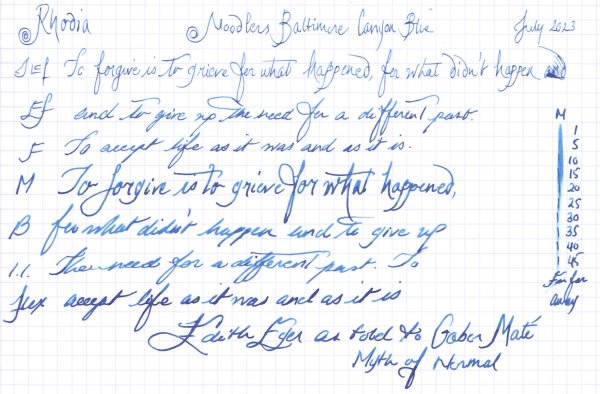 @ Rhodia @ Noodlers Baltimore Canyon Blue July 2023
JEF To forgive is to grieve for what happened, for what didn't happen and
EF and to give up the need for a different past.
F To accept life as it was and as it is.
M To forgive is to grieve for what happened,
B for what didn't happen and to give up
1.1. The need for a different past. To
flex accept life as it was and as it is
Edith Eger as told to Gabor Maté
Myth of Normal
M
1
5
10
15
20
25
30
35
40
45
Far far
away